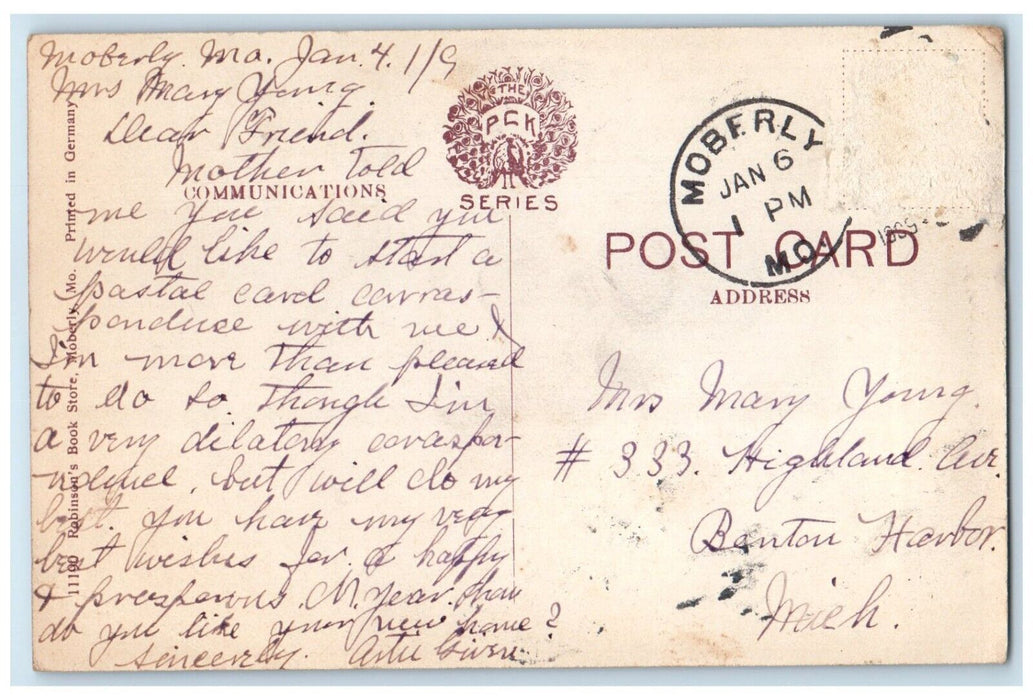 Moberly. Mo. Jan. 4. 1/9
Mrs Mary Young.
Dear Friend.
Mother told
COMMUNICATIONS
me you said you
would like to start a
postal card corras-
ponduce with me!
I'm more than pleased
to do so. though I'm
a very dilatory corraspo-
nduce, but will do my
best. you have my very
best wishes for a happy
& prosperous. N. year. How
do you like your new home?
Sincerely.
11190 Robinson's Book Store, Moberly, Mo. Printed in Germany
THE
PCK
SERIES
MOBERLY
JAN 6
1 PM
MO.
POST CARD
ADDRESS
Mrs Mary Young.
# 333. Highland. Ave.
Benton Harbor.
Mich.